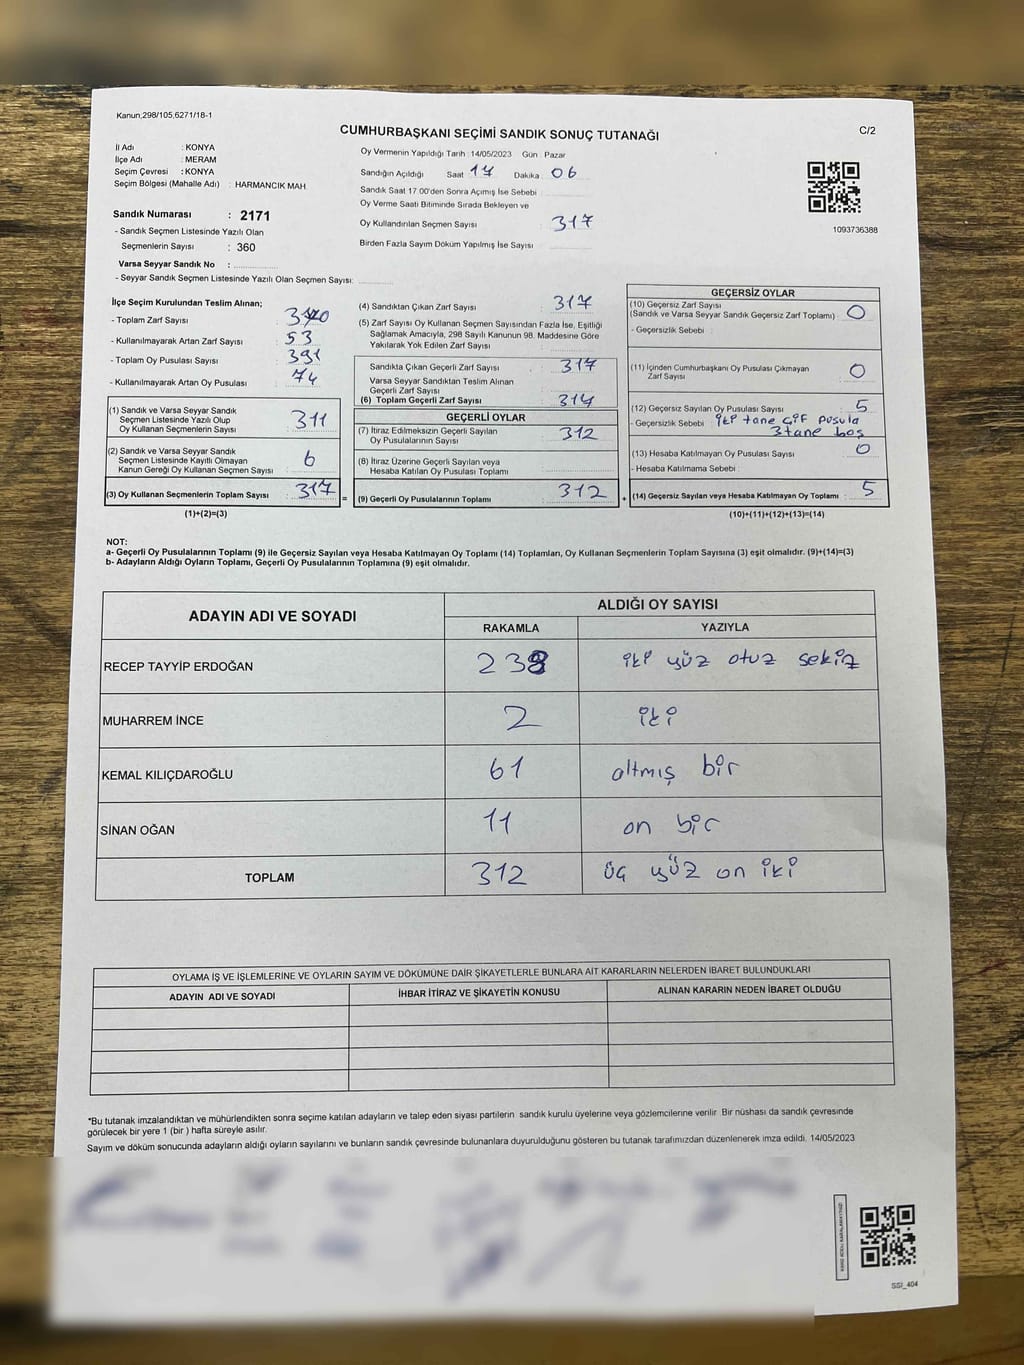 Kanun,298/105,6271/18-1
CUMHURBAŞKANI SEÇİMİ SANDIK SONUÇ TUTANAĞI
C/2
İl Adı : KONYA
İlçe Adı : MERAM
Seçim Çevresi : KONYA
Seçim Bölgesi (Mahalle Adı) : HARMANCIK MAH.
Sandık Numarası : 2171
- Sandık Seçmen Listesinde Yazılı Olan
Seçmenlerin Sayısı : 360
Varsa Seyyar Sandık No :
- Seyyar Sandık Seçmen Listesinde Yazılı Olan Seçmen Sayısı:
Oy Vermenin Yapıldığı Tarih : 14/05/2023 Gün : Pazar
Sandığın Açıldığı Saat 17 Dakika : 06
Sandık Saat 17:00'den Sonra Açımış İse Sebebi
Oy Verme Saati Bitiminde Sırada Bekleyen ve
Oy Kullandırılan Seçmen Sayısı : 317
Birden Fazla Sayım Döküm Yapılmış İse Sayısı :
1093736388
İlçe Seçim Kurulundan Teslim Alınan;
- Toplam Zarf Sayısı :
- Kullanılmayarak Artan Zarf Sayısı : 53
- Toplam Oy Pusulası Sayısı : 391
- Kullanılmayarak Artan Oy Pusulası : 74
(1) Sandık ve Varsa Seyyar Sandık
Seçmen Listesinde Yazılı Olup
Oy Kullanan Seçmenlerin Sayısı : 311
(2) Sandık ve Varsa Seyyar Sandık
Seçmen Listesinde Kayıtlı Olmayan
Kanun Gereği Oy Kullanan Seçmen Sayısı : 6
(3) Oy Kullanan Seçmenlerin Toplam Sayısı : 317 =
(1)+(2)=(3)
(4) Sandıktan Çıkan Zarf Sayısı : 317
(5) Zarf Sayısı Oy Kullanan Seçmen Sayısından Fazla İse, Eşitliği
Sağlamak Amacıyla, 298 Sayılı Kanunun 98. Maddesine Göre
Yakılarak Yok Edilen Zarf Sayısı :
Sandıkta Çıkan Geçerli Zarf Sayısı : 317
Varsa Seyyar Sandıktan Teslim Alınan
Geçerli Zarf Sayısı :
(6) Toplam Geçerli Zarf Sayısı : 317
GEÇERLİ OYLAR
(7) İtiraz Edilmeksizin Geçerli Sayılan
Oy Pusulalarının Sayısı : 312
(8) İtiraz Üzerine Geçerli Sayılan veya
Hesaba Katılan Oy Pusulası Toplamı :
(9) Geçerli Oy Pusulalarının Toplamı : 312 +
GEÇERSİZ OYLAR
(10) Geçersiz Zarf Sayısı
(Sandık ve Varsa Seyyar Sandık Geçersiz Zarf Toplamı) : 0
- Geçersizlik Sebebi :
(11) İçinden Cumhurbaşkanı Oy Pusulası Çıkmayan
Zarf Sayısı : 0
(12) Geçersiz Sayılan Oy Pusulası Sayısı : 5
- Geçersizlik Sebebi : iki tane çif pusula
3 tane boş
(13) Hesaba Katılmayan Oy Pusulası Sayısı : 0
- Hesaba Katılmama Sebebi :
(14) Geçersiz Sayılan veya Hesaba Katılmayan Oy Toplamı : 5
(10)+(11)+(12)+(13)=(14)
NOT:
a- Geçerli Oy Pusulalarının Toplamı (9) ile Geçersiz Sayılan veya Hesaba Katılmayan Oy Toplamı (14) Toplamları, Oy Kullanan Seçmenlerin Toplam Sayısına (3) eşit olmalıdır. (9)+(14)=(3)
b- Adayların Aldığı Oyların Toplamı, Geçerli Oy Pusulalarının Toplamına (9) eşit olmalıdır.
ADAYIN ADI VE SOYADI
ALDIĞI OY SAYISI
RAKAMLA YAZIYLA
RECEP TAYYİP ERDOĞAN 238 iki yüz otuz sekiz
MUHARREM İNCE 2 iki
KEMAL KILIÇDAROĞLU 61 altmış bir
SİNAN OĞAN 11 on bir
TOPLAM 312 üç yüz on iki
OYLAMA İŞ VE İŞLEMLERİNE VE OYLARIN SAYIM VE DÖKÜMÜNE DAİR ŞİKAYETLERLE BUNLARA AİT KARARLARIN NELERDEN İBARET BULUNDUKLARI
ADAYIN ADI VE SOYADI İHBAR İTİRAZ VE ŞİKAYETİN KONUSU ALINAN KARARIN NEDEN İBARET OLDUĞU
*Bu tutanak imzalandıktan ve mühürlendikten sonra seçime katılan adayların ve talep eden siyasi partilerin sandık kurulu üyelerine veya gözlemcilerine verilir. Bir nüshası da sandık çevresinde
görülecek bir yere 1 (bir ) hafta süreyle asılır.
Sayım ve döküm sonucunda adayların aldığı oyların sayılarını ve bunların sandık çevresinde bulunanlara duyurulduğunu gösteren bu tutanak tarafımızdan düzenlenerek imza edildi. 14/05/2023
SSI_404